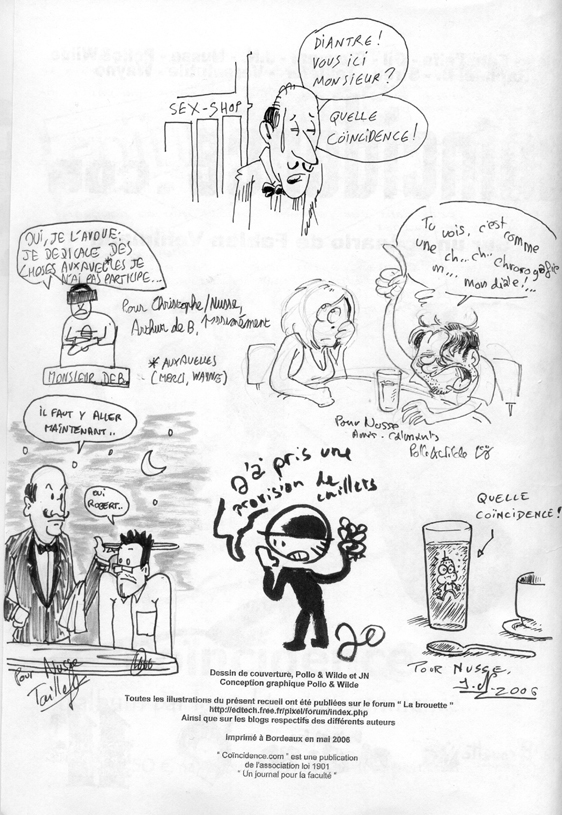 DIANTRE!
VOUS ICI
MONSIEUR?
QUELLE
COÏNCIDENCE!
SEX-SHOP
OUI, JE L'AVOUE:
JE DEDICACE DES
CHOSES AUXAVELLES JE
N'AI PAS PARTICIPE...
Pour Christophe/Nusse,
Arthur de B,
* AUXAVELLES
(MERCI, WAYNE)
MONSIEUR DEB.
Tu vois, c'est comme
une ch... ch... chronogaffie
m... mondiale!...
Pour Nusse
IL FAUT Y ALLER
MAINTENANT..
OUI
ROBERT..
Pour Nusse
J'ai pris une
provision de
QUELLE
COÏNCIDENCE!
POUR NUSSE.
2006
Dessin de couverture, Pollo & Wilde et JN
Conception graphique Pollo & Wilde
Toutes les illustrations du présent recueil ont été publiées sur le forum " La brouette "
http://edtech.free.fr/pixel/forum/index.php
Ainsi que sur les blogs respectifs des différents auteurs
Imprimé à Bordeaux en mai 2006
" Coïncidence.com " est une publication
de l'association loi 1901
" Un journal pour la faculté "